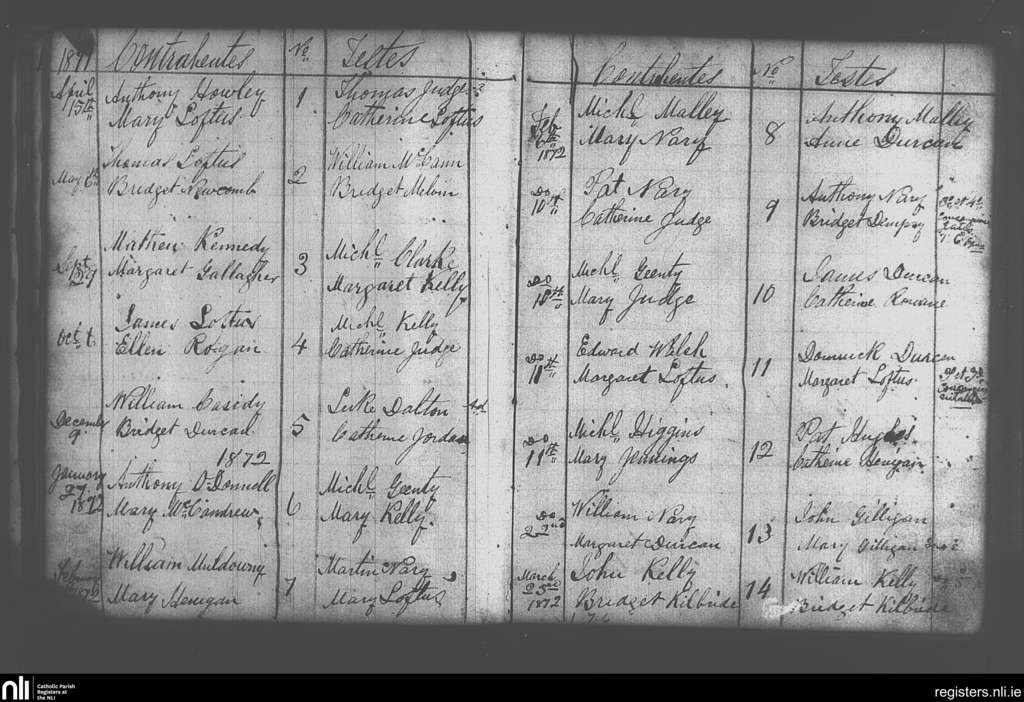 1871 Contrahentes No. Testes
April 15th Anthony Howley 1 Thomas Judge
Mary Loftus Catherine Loftus
May 6th Thomas Loftus 2 William McCann
Bridget Newcomb Bridget Melvin
Sept Mathew Kennedy 3 Michl. Clarke
Margaret Gallagher Margaret Kelly
Oct James Loftus 4 Michl. Kelly
Ellen Roigan Catherine Judge
December 9 William Casidy 5 Luke Dalton
Bridget Duncan Catherine Jordan
1872
January 27 1872 Anthony O'Donnell 6 Michl. Geenty
Mary McCandrew Mary Kelly
February 1872 William Muldowny 7 Martin Nary
Mary Henigan Mary Loftus
Contrahentes No Testes
Feb 6th 1872 Michl. Malley 8 Anthony Malley
Mary Nary Anne Duncan
Do 10th Pat Nary 9 Anthony Nary
Catherine Judge Bridget Dempsy
Do 10th Michl. Geenty 10 James Duncan
Mary Judge Catherine Rowane
Do 11th Edward Welsh 11 Dominick Duncan
Margaret Loftus Margaret Loftus
Do 11th Michl. Higgins 12 Pat Hughes
Mary Jennings Catherine Henigan
Do 22nd William Nary 13 John Gilligan
Margaret Duncan Mary Gilligan
March 25 1872 John Kelly 14 William Kelly
Bridget Kilbride Bridget Kilbride
nli Catholic Parish Registers at the NLI
registers.nli.ie